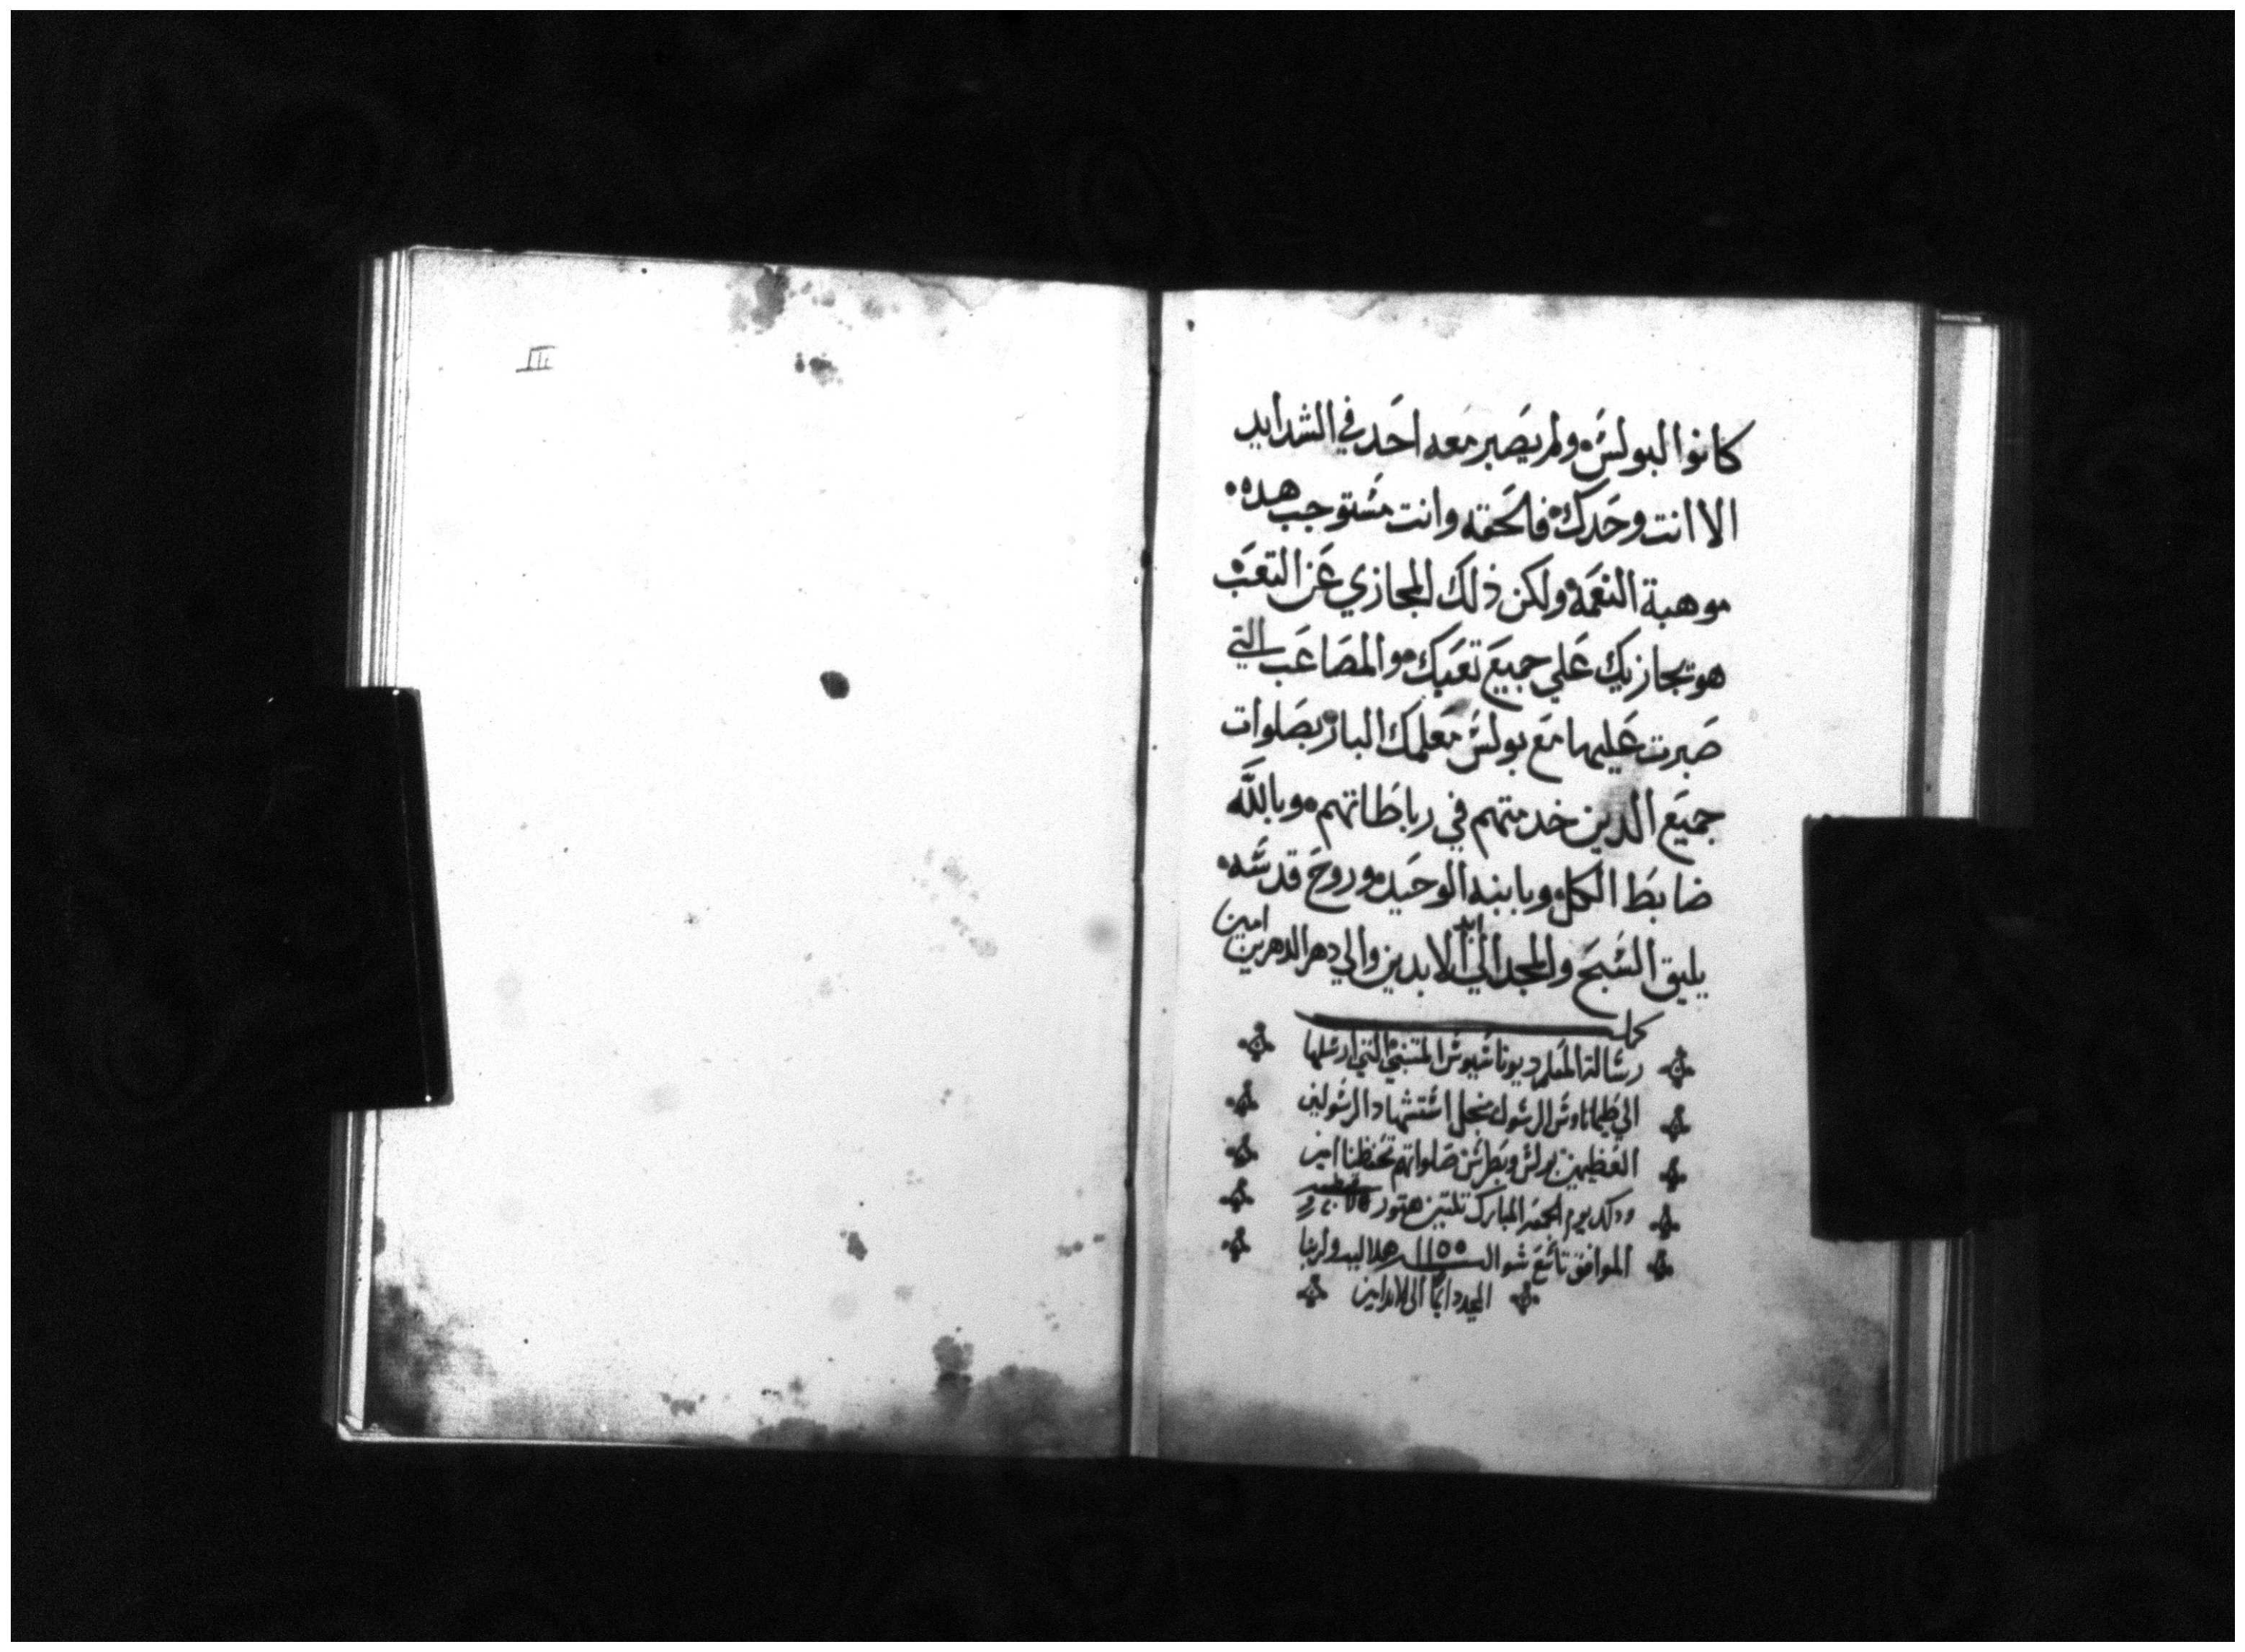 كانوا لبولس ولم يصبر معه احد في الشدايد
الا انت وحدك فالحقه وانت مستوجب هده
موهبة النعمه ولكن ذلك المجازي عن التعب
هو يجازيك علي جميع تعبك والمصاعب التي
صبرت عليها مع بولس معلمك البار بصلوات
جميع الدين خدمتهم في رباطاتهم وبالله
ضابط الكل وبابنه الوحيد وروح قدسه
يليق السبح والمجد الي ابد الابدين والي دهر الدهرين امين
كملت
رسالة المعلم ديوناسيوس المتبني التي ارسلها
الي طيماتاوس الرسول منجل استشهاد الرسولين
العظيمين بولس وبطرس صلواتهم تحفظنا امين
ودلك يوم المبارك تلتين هتور
الموافق تاسع شوال هلاليه ولربنا
المجد دايما الي الابد امين
III